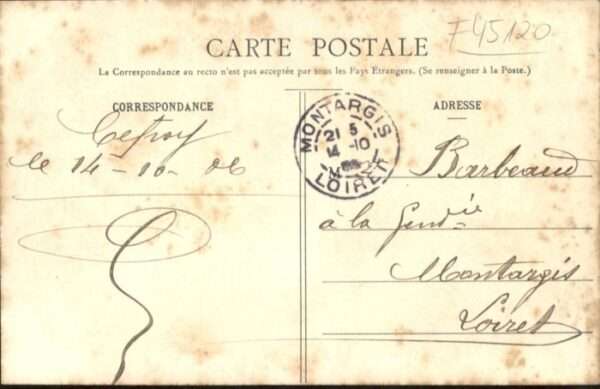 F 45120
CARTE POSTALE
La Correspondance au recto n'est pas acceptée par tous les Pays Etrangers. (Se renseigner à la Poste.)
CORRESPONDANCE
ADRESSE
le 14-10-06
MONTARGIS
21 5
14 -10
LOIRET
Barbeaud
à la Gend.ie
Montargis
Loiret